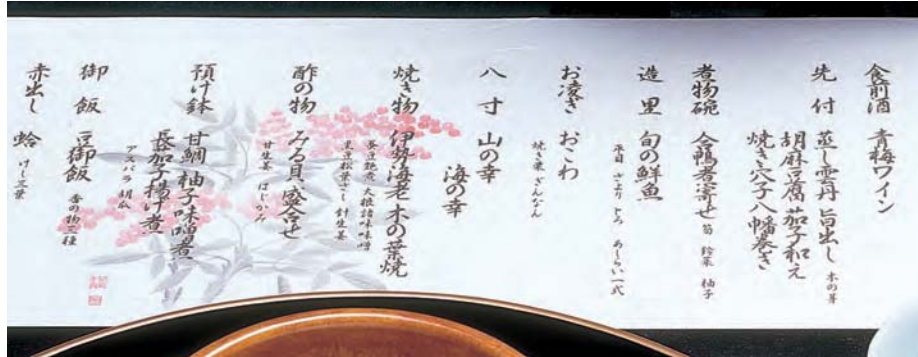 食前酒 青梅ワイン
先付 蒸し雲丹 旨出し 木の芽
胡麻豆腐 茄子和え
焼き穴子八幡巻き
煮物碗 合鴨者寄せ 筍 鈴菜 柚子
造里 旬の鮮魚
平目 さより とろ あしらい一式
お凌ぎ おこわ
焼き栗 ぎんなん
八寸 山の幸
海の幸
焼き物 伊勢海老 木の葉焼
蚕豆艶煮 大根諸味味噌
黒豆松葉さし 針生姜
酢の物 みる貝 盛合せ
甘生姜 はじかみ
預け鉢 甘鯛 柚子味噌煮
長茄子揚げ煮
アスパラ
御飯 豆御飯 香の物三種
赤出し 蛤 けし三葉